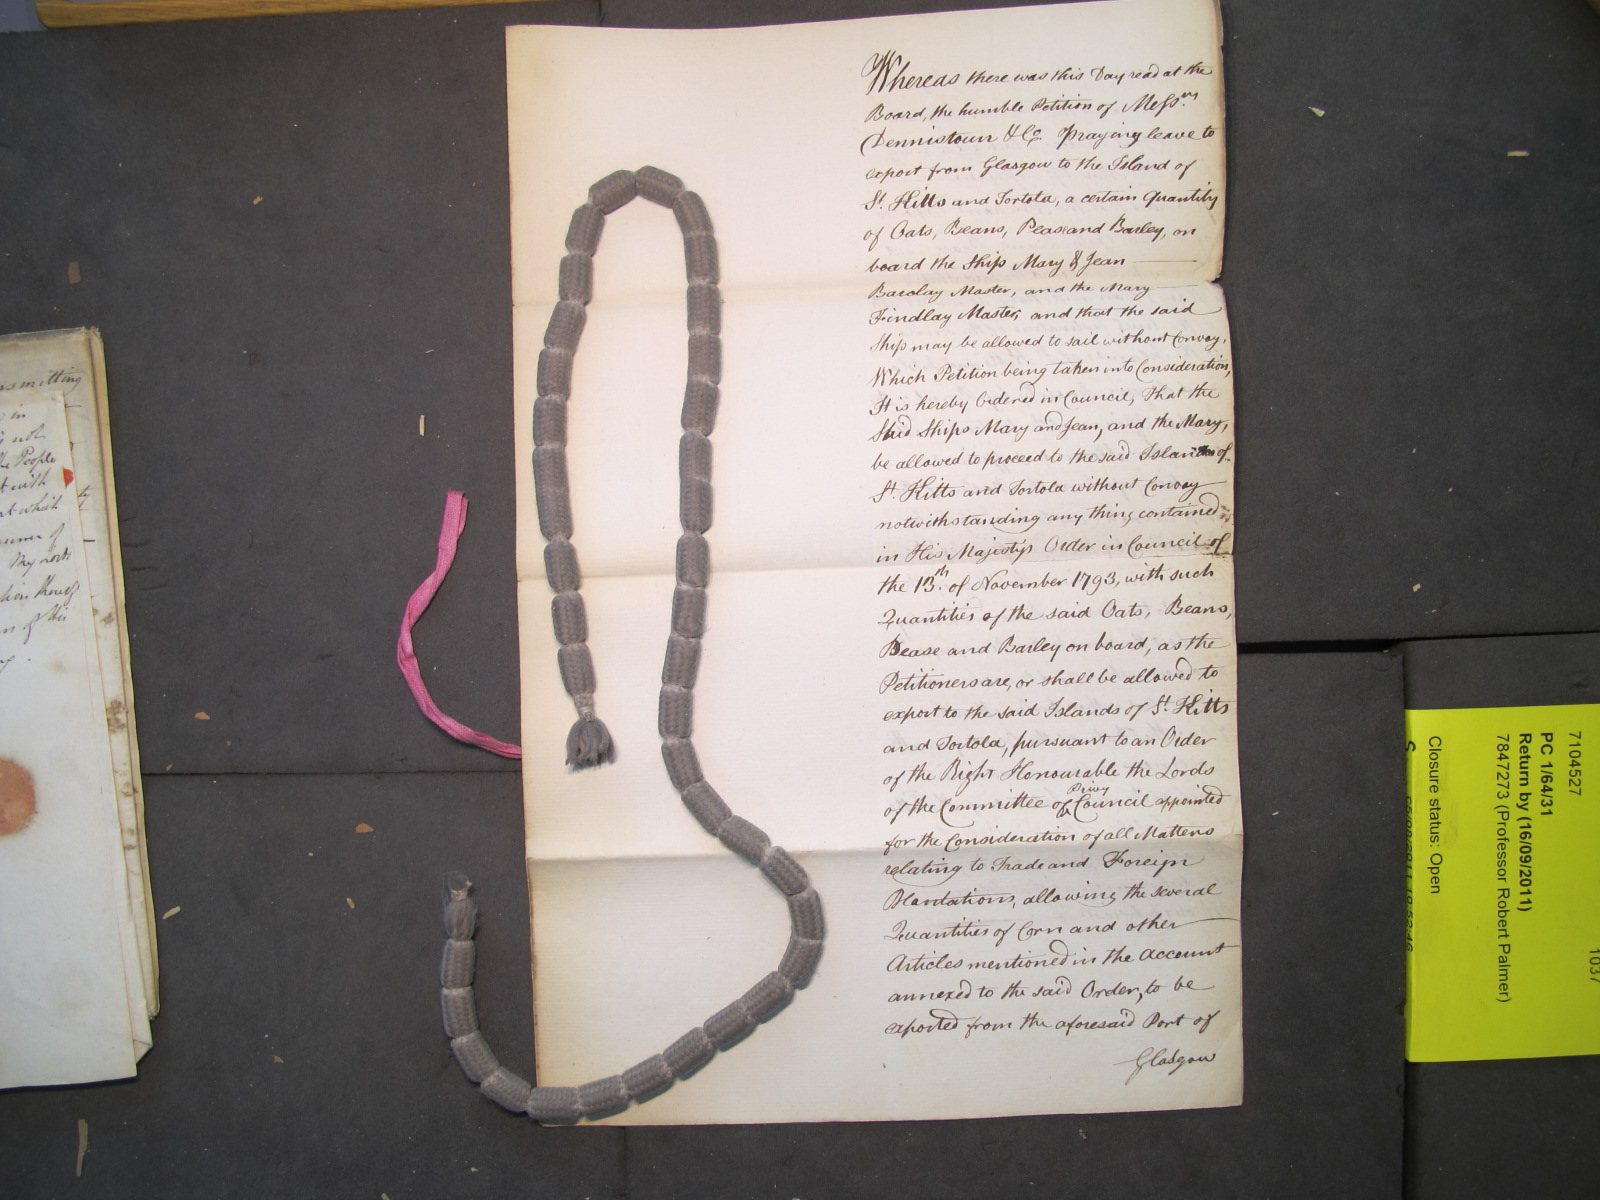 Whereas there was this Day read at the
Board, the humble Petition of Messrs.
Dennistoun & Co. Praying leave to
export from Glasgow to the Island of
St. Kitts and Tortola, a certain Quantity
of Oats, Beans, Pease and Barley, on
board the Ship Mary & Jean
Barclay Master, and the Mary
Findlay Master, and that the said
Ship may be allowed to sail without Convoy,
Which Petition being taken into Consideration,
It is hereby Ordered in Council, That the
Said Ships Mary and Jean, and the Mary,
be allowed to proceed to the said Islands of
St. Kitts and Tortola without Convoy
notwithstanding any thing contained
in His Majesty's Order in Council of
the 13th. of November 1793, with such
Quantities of the said Oats, Beans,
Pease and Barley on board, as the
Petitioners are, or shall be allowed to
export to the said Islands of St. Kitts
and Tortola, pursuant to an Order
of the Right Honourable the Lords
of the Committee of Privy Council appointed
for the Consideration of all Matters
relating to Trade and Foreign
Plantations, allowing the several
Quantities of Corn and other
Articles mentioned in the Account
annexed to the said Order, to be
exported from the aforesaid Port of
Glasgow
smitting
in
not
the People
with
which
of
My Lords
of this
7104527
PC 1/64/31
Return by (16/09/2011)
7847273 (Professor Robert Palmer)
Closure status: Open
1037